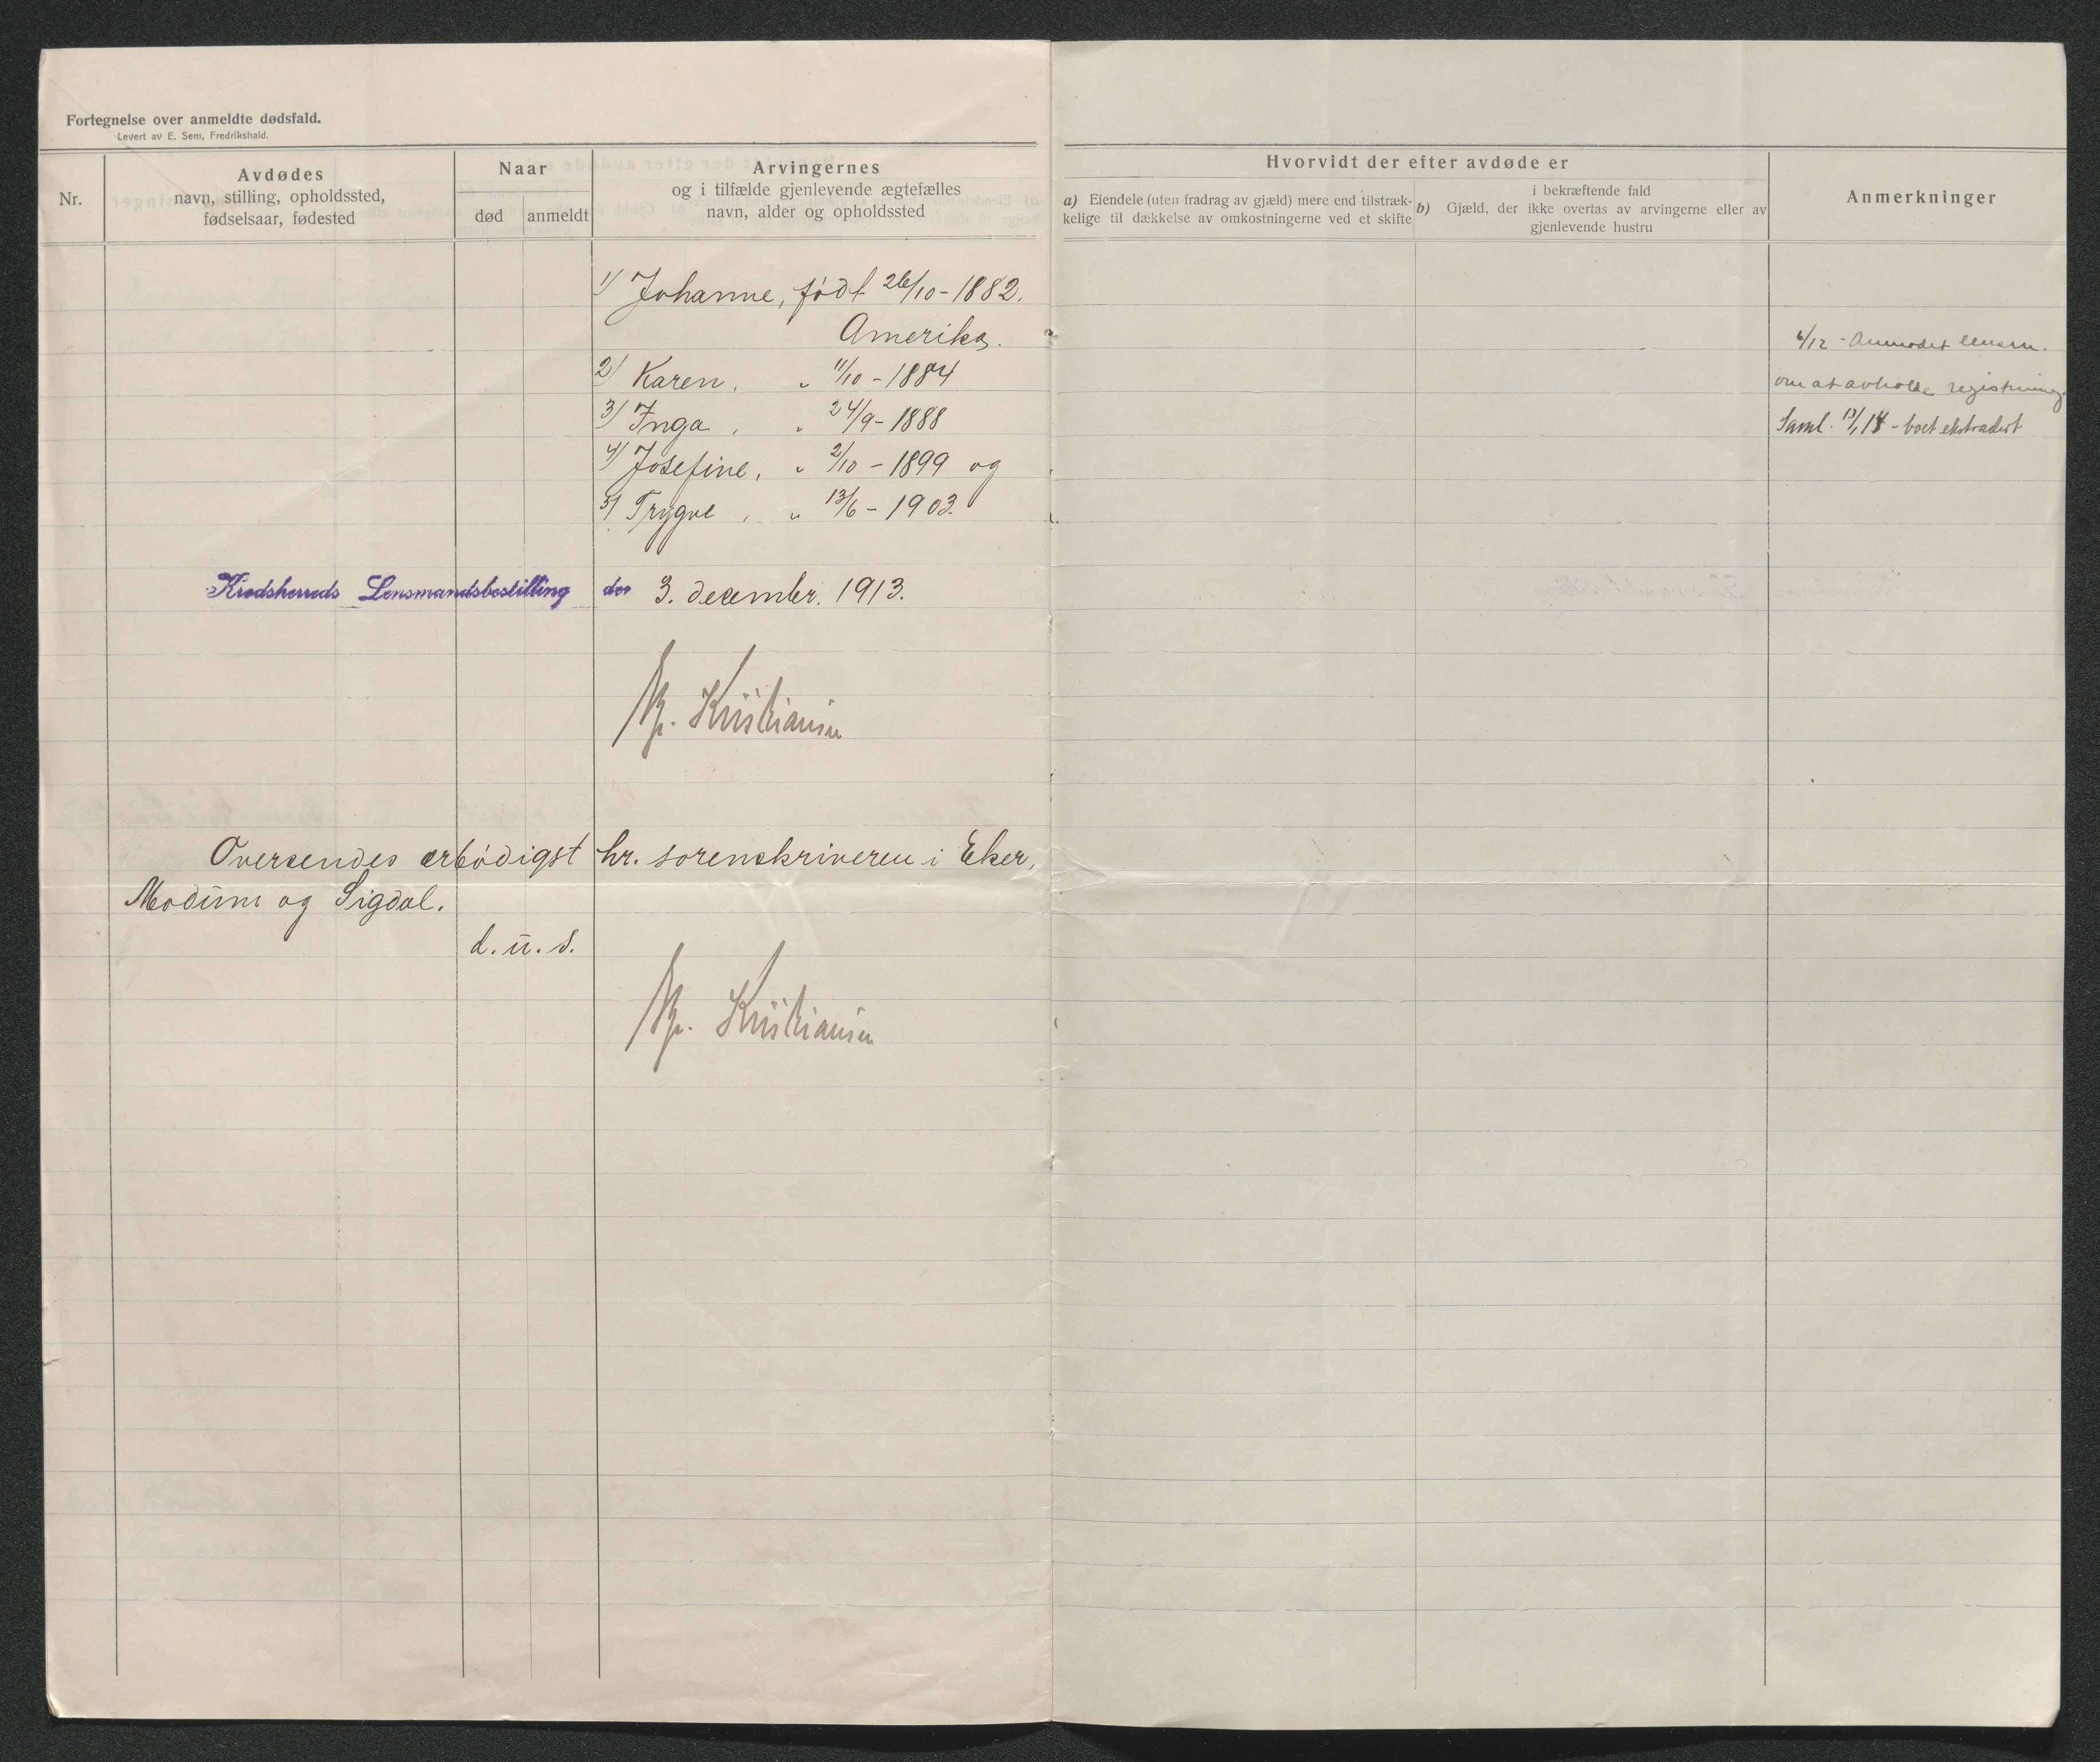 Fortegnelse over anmeldte dødsfald.
Levert av E. Sem, Fredrikshald.
Nr.
Avdødes
navn, stilling, opholdssted,
fødselsaar, fødested
Naar
død
anmeldt
Arvingernes
og i tilfælde gjenlevende ægtefælles
navn, alder og opholdssted
Hvorvidt der efter avdøde er
a) Eiendele (uten fradrag av gjæld) mere end tilstræk-
kelige til dækkelse av omkostningerne ved et skifte
i bekræftende fald
b) Gjæld, der ikke overtas av arvingerne eller av
gjenlevende hustru
Anmerkninger
1) Johanne, født 26/10-1882.
Amerika.
2) Karen, " 11/10-1884
3) Inga, " 24/9-1888
4) Josefine, " 2/10-1899 og
5) Trygve, " 13/6-1903.
6/12 - Anmodet lensm.
om at avholde registrering
Saml. 13/1 14 - boet ekstradert
Krødsherreds Lensmandsbestilling den 3. december. 1913.
Kristiansen
Oversendes ærbødigst hr. sorenskriveren i Eker,
Modum og Sigdal.
d. u. s.
Kristiansen